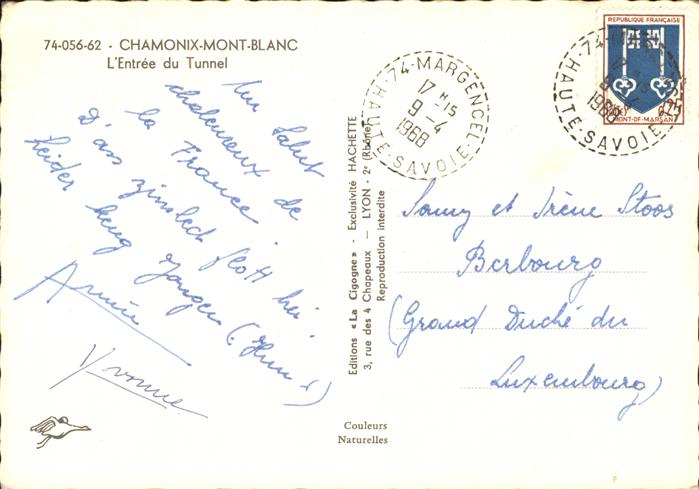 74-056-62 - CHAMONIX-MONT-BLANC
L'Entrée du Tunnel
Un Salut
chaleureux de
la France.
D'ass zimlech flott hei.
Leider keng Jongen (Hum!)
Annie
Yvonne
Editions «La Cigogne» - Exclusivité HACHETTE
3, rue des 4 Chapeaux - LYON - 2e (Rhône)
Reproduction interdite
74-MARGENCEL
17 H-15
9-4
1968
HAUTE-SAVOIE
REPUBLIQUE FRANÇAISE
0,25
MONT-DE-MARSAN
1968
HAUTE-SAVOIE
Samy et Irène Stoos
Berbourg
(Grand Duché du
Luxembourg)
Couleurs
Naturelles